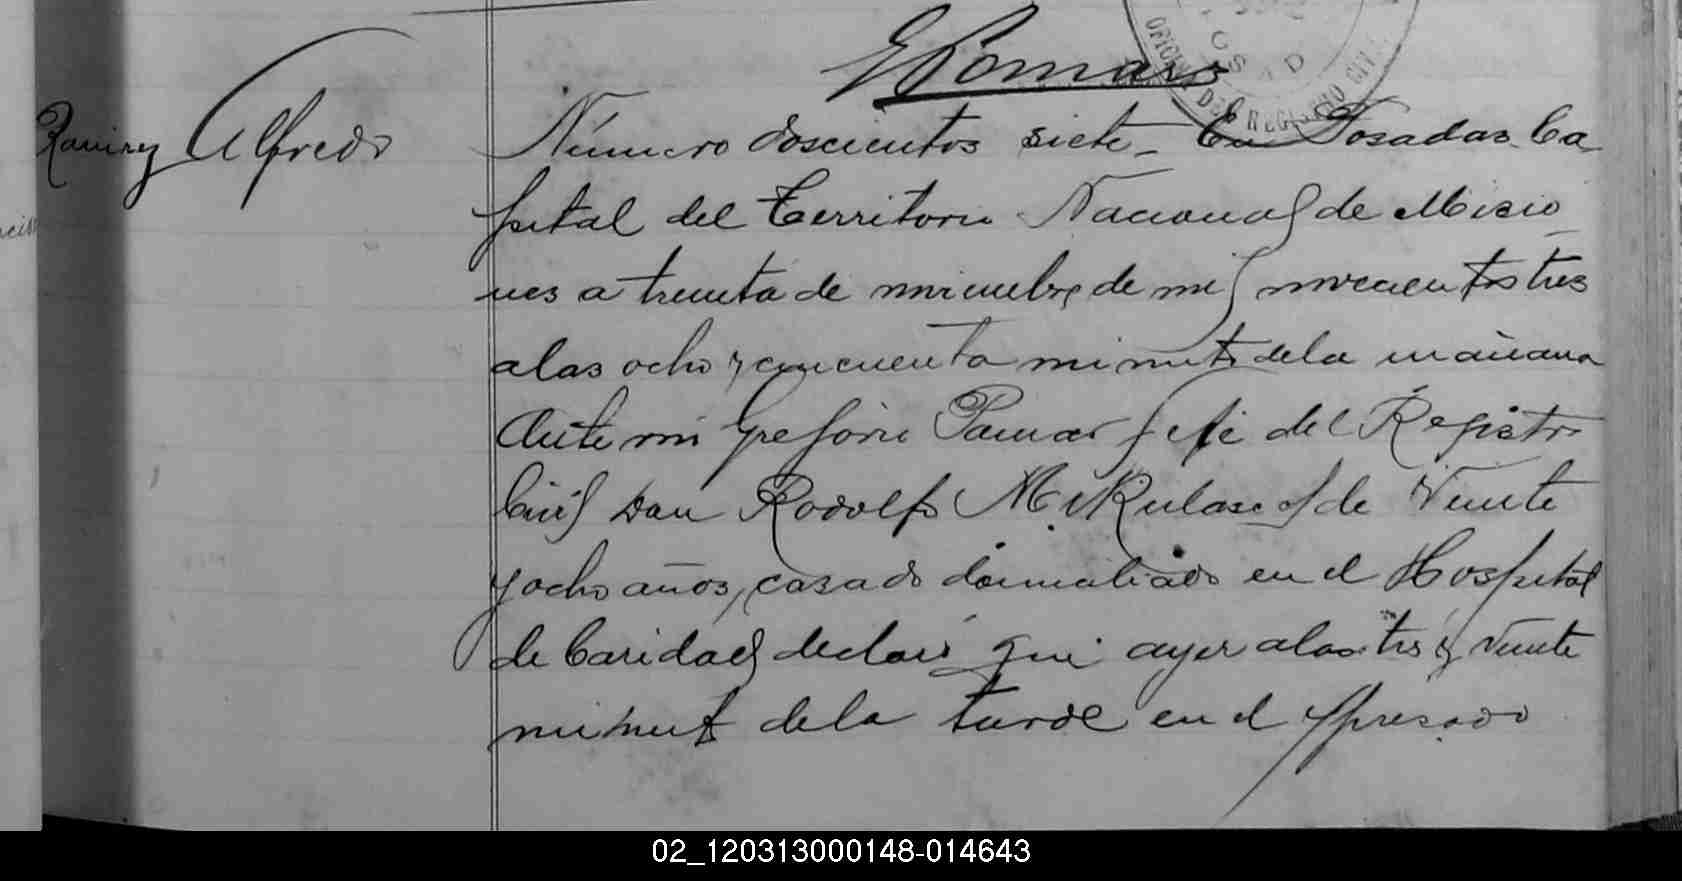 G Pomar
OFICINA DEL REGISTRO CIVIL
Ramirez Alfredo
Número doscientos siete_ En Posadas Ca
pital del Territorio Nacional de Misio_
nes a treinta de noviembre de mil novecientos tres
a las ocho y cincuenta minutos de la mañana
Ante mi Gregorio Pomar Jefe del Registro
Civil Don Rodolfo M. de Veinte
y ocho años, casado domiciliado en el Hospital
de Caridad, declaró que ayer a las tres y veinte
minutos de la tarde en el espresado
02_120313000148-014643